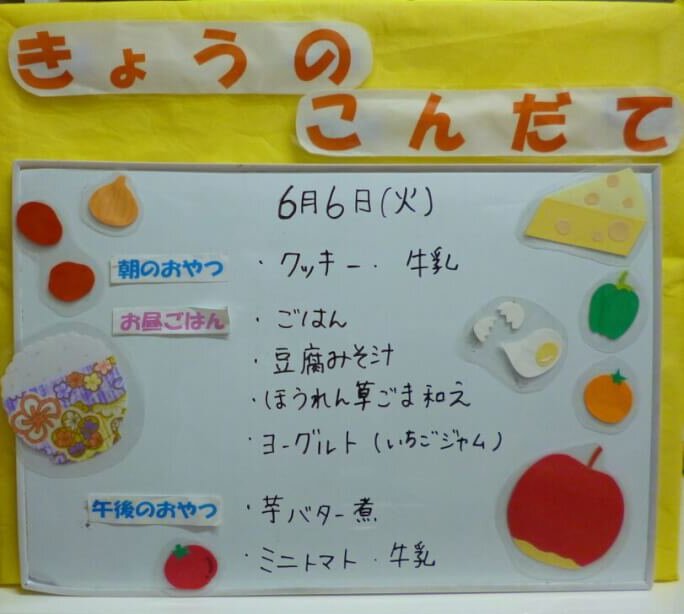 きょうの
こんだて
6月6日(火)
朝のおやつ ・クッキー・ 牛乳
お昼ごはん ・ごはん
・豆腐みそ汁
・ほうれん草ごま和え
・ヨーグルト(いちごジャム)
午後のおやつ ・芋バター煮
・ミニトマト・牛乳